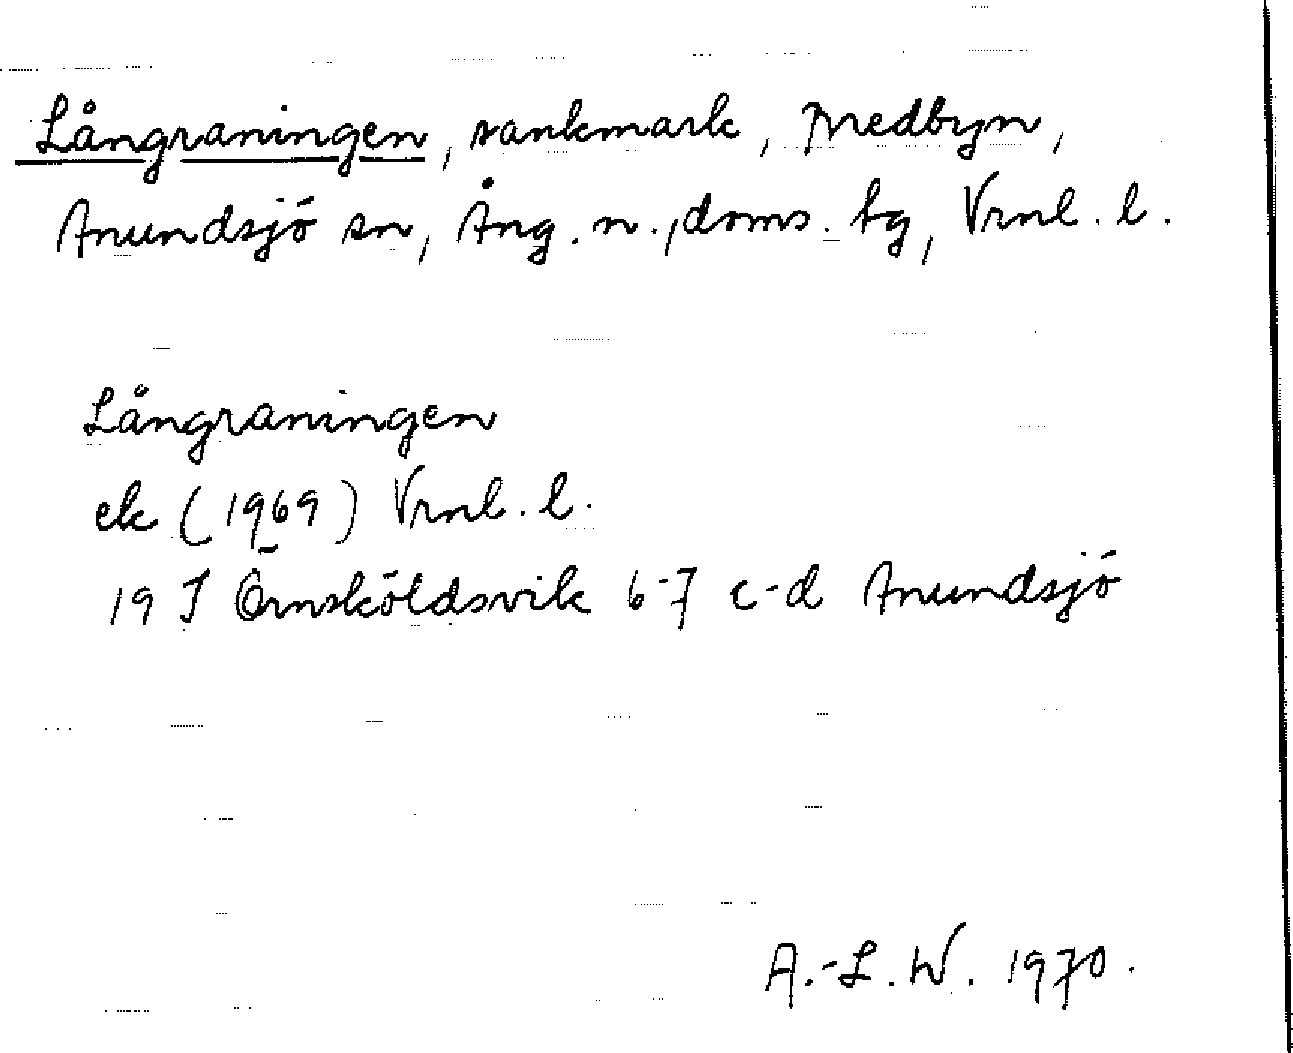 Långraningen, sankmark, Predbyn,
Anundsjö sn, Ång. n., doms. tg, Vrnl. l.
Långraningen
ek (1969) Vrnl. l.
19 J Örnsköldsvik 6-7 c-d Anundsjö
A.-L. W. 1970.